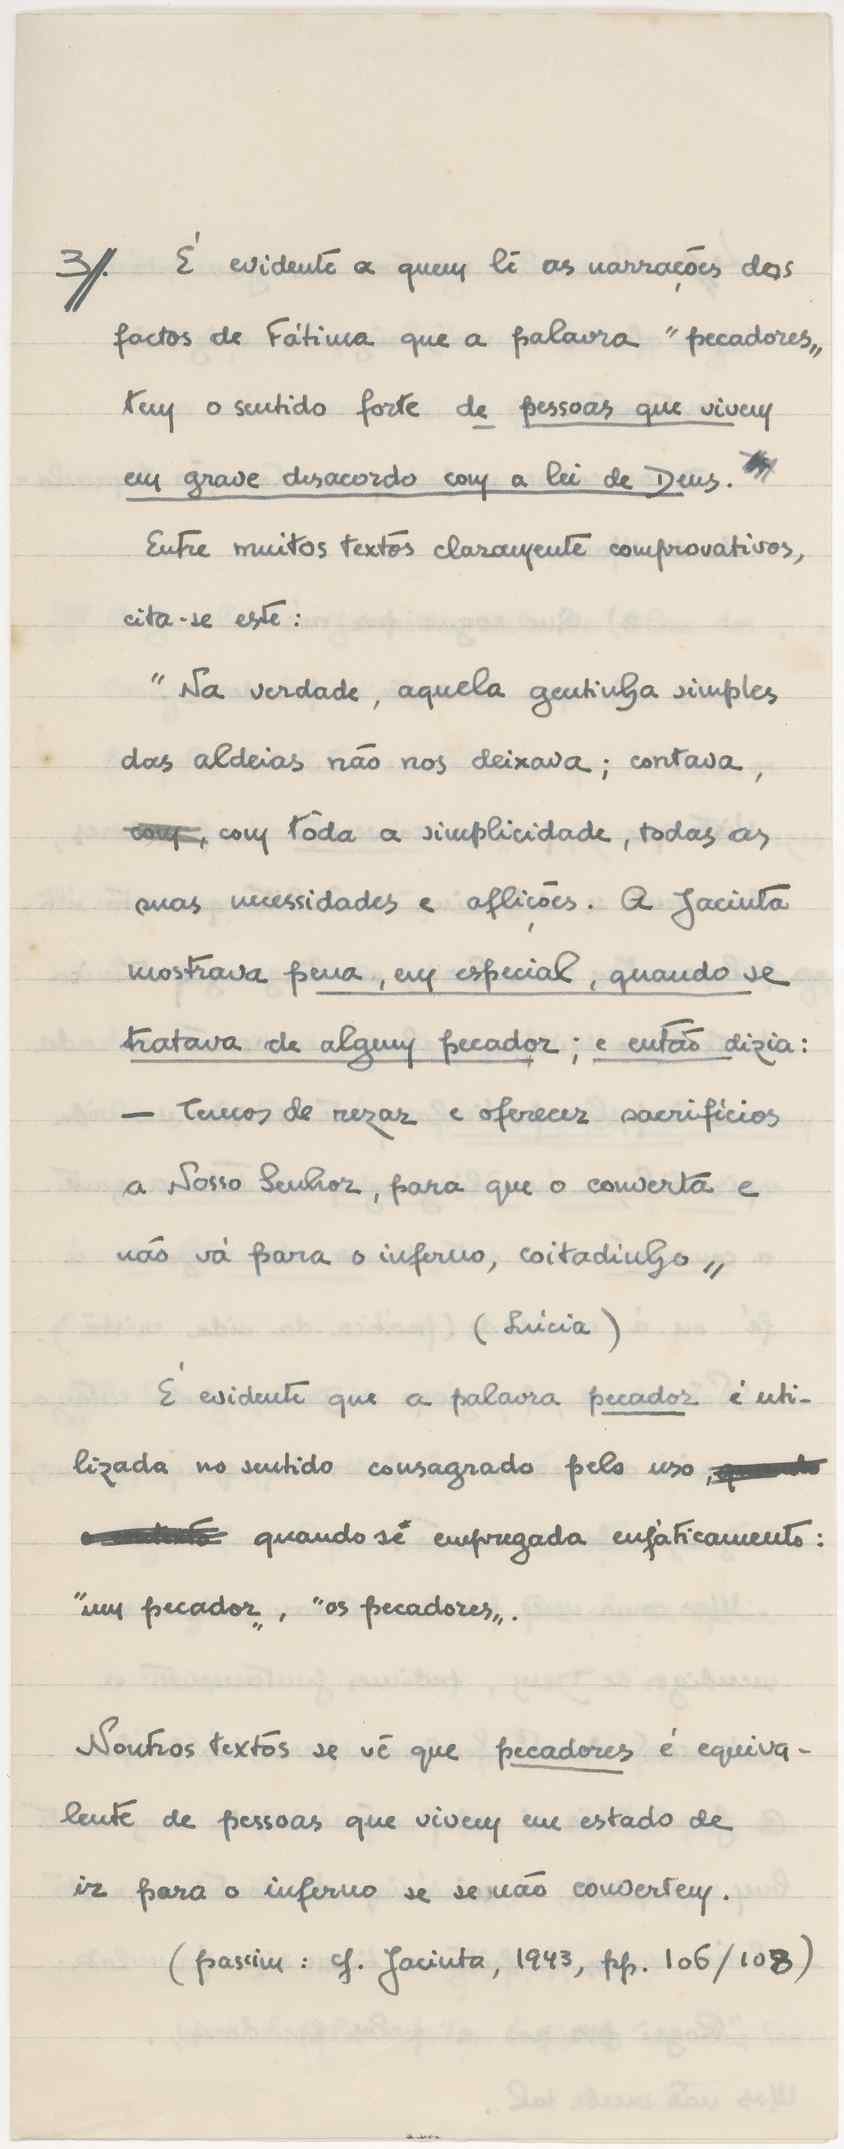 3/. É evidente a quem lê as narrações dos
factos de Fátima que a palavra "pecadores„
tem o sentido forte de pessoas que vivem
em grave desacordo com a lei de Deus.
Entre muitos textos claramente comprovativos,
cita-se este:
"Na verdade, aquela gentinha simples
das aldeias não nos deixava; contava,
com, com tôda a simplicidade, todas as
suas necessidades e aflições. A Jacinta
mostrava pena, em especial, quando se
tratava de algum pecador; e então dizia:
— Temos de rezar e oferecer sacrifícios
a Nosso Senhor, para que o converta e
não vá para o inferno, coitadinho„
(Lúcia)
É evidente que a palavra pecador é uti-
lizada no sentido consagrado pelo uso,
quando se empregada enfàticamente:
"um pecador„, "os pecadores„.
Noutros textos se vê que pecadores é equiva-
lente de pessoas que vivem em estado de
ir para o inferno se se não convertem.
(passim: cf. Jacinta, 1943, pp. 106/108)